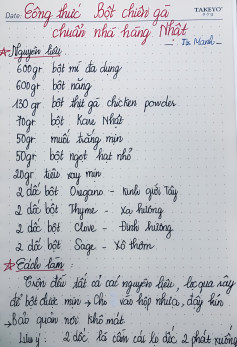 Date: Công thức Bột chiên gà TAKEYO
chuẩn nhà hàng Nhật
Nguyên liệu:
600gr bột mì đa dụng
600gr bột năng
150gr bột thịt gà chicken powder
70gr bột Kare Nhật
50gr muối trắng mịn
50gr bột ngọt hạt nhỏ
20gr tiêu xay mịn
2 dốc bột Oregano - Kinh giới Tây
2 dốc bột Thyme - Xạ hương
2 dốc bột Clove - Đinh hương
2 dốc bột Sage - Xô thơm
Cách làm:
Trộn đều tất cả các nguyên liệu, lọc qua rây
để bột được mịn → Cho vào hộp nhựa, đậy kín
→ Bảo quản nơi khô mát.
Lưu ý: 2 dốc là cầm cái lọ dốc 2 phát xuống